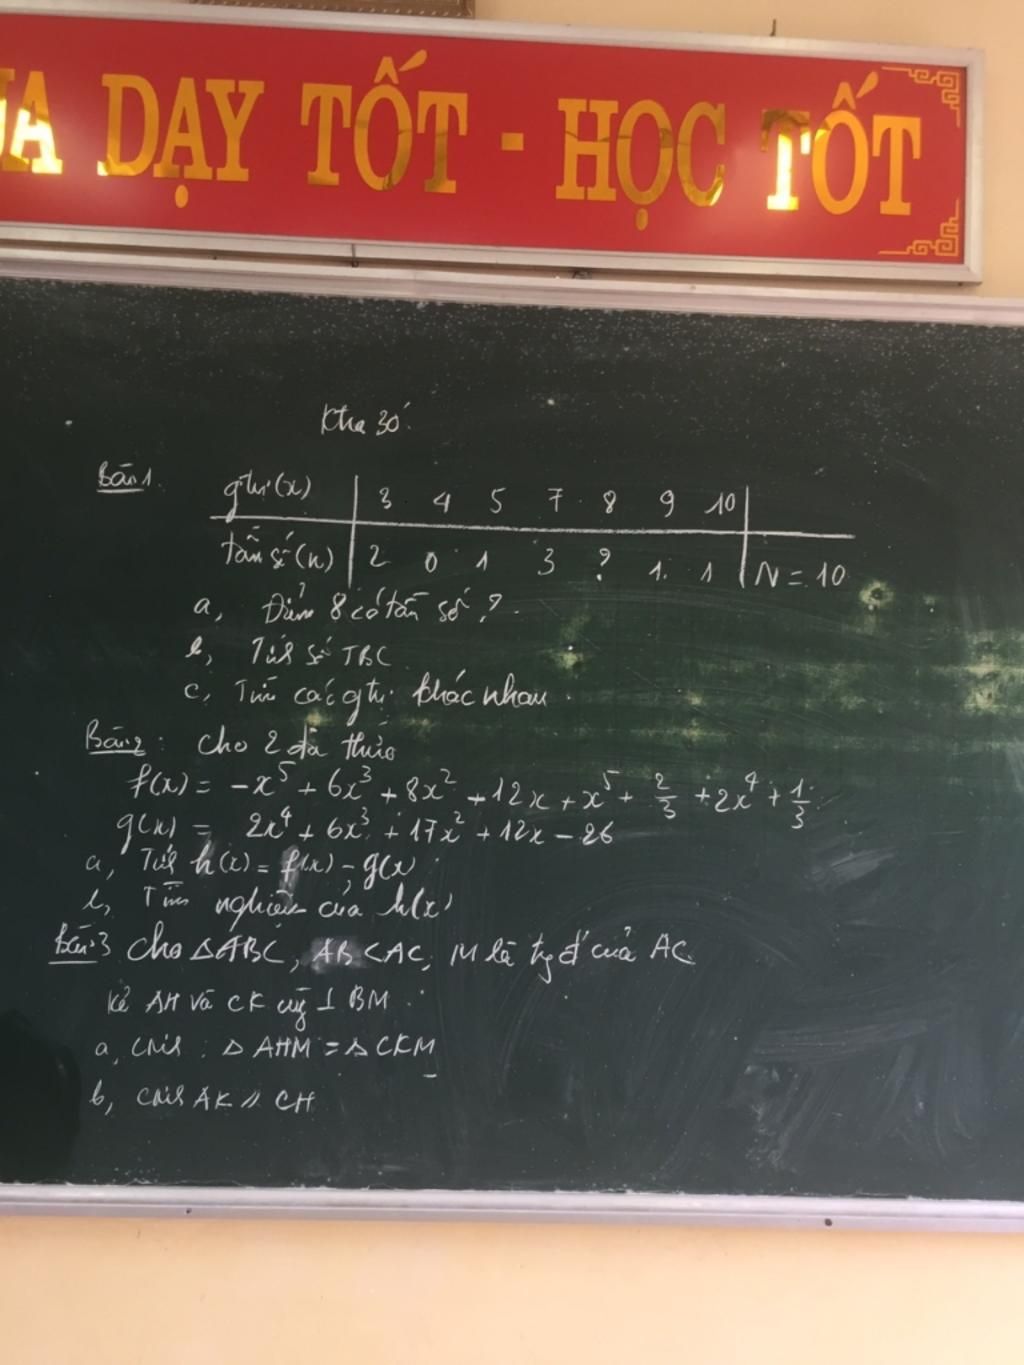 UA DẠY TỐT - HỌC TỐT
Bài 1.
gtrị (x) 3 4 5 7 8 9 10
tần số (n) 2 0 1 3 ? 1 1 N = 10
a, Điểm 8 có tần số ?
b, Tính số TBC
c, Tìm các gtrị khác nhau.
Bài 2: Cho 2 đa thức
f(x) = -x⁵ + 6x³ + 8x² + 12x + x⁵ + 2/3 + 2x⁴ + 1/3
g(x) = 2x⁴ + 6x³ + 17x² + 12x - 26
a, Tính h(x) = f(x) - g(x)
b, Tìm nghiệm của h(x)
Bài 3 Cho △ABC, AB < AC, M là tg đ' của AC
Kẻ AH và CK cùng ⊥ BM
a, Cmr: △ AHM = △ CKM
b, Cmr AK // CH